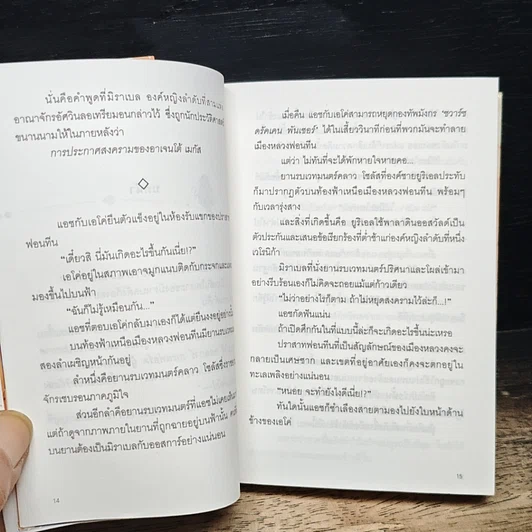 นั่นคือคำพูดที่มิราเบล องค์หญิงลำดับที่สามแห่ง
อาณาจักรอัศวินลอเทรียมอนกล่าวไว้ ซึ่งถูกนักประวัติศาสตร์
ขนานนามให้ในภายหลังว่า
การประกาศสงครามของอาเจนโต้ เมกัส
◇
แอชกับเอโค่ยืนตัวแข็งอยู่ในห้องรับแขกของปราสาท
ฟอนทีน
“เดี๋ยวสิ นี่มันเกิดอะไรขึ้นกันเนี่ย!?”
เอโค่อยู่ในสภาพเอาจมูกแนบติดกับกระจกและ
มองขึ้นไปบนฟ้า
“ฉันก็ไม่รู้เหมือนกัน...”
แอชที่ตอบเอโค่กลับมาเองก็ได้แต่ยืนงงอยู่
บนท้องฟ้าเหนือเมืองหลวงฟอนทีนมียานรบ
สองลำเผชิญหน้ากันอยู่
ลำหนึ่งคือยานรบเวทมนตร์คลาว โซลัสที่
จักรเซบรอนภาคภูมิใจ
ส่วนอีกลำคือยานรบเวทมนตร์ที่แอชไม่เคยเห็น
แต่ถ้าดูจากภาพภายในยานที่ถูกฉายอยู่บนฟ้านั้น
บนยานต้องเป็นมิราเบลกับออสการ์อย่างแน่นอน
14
เมื่อคืน แอชกับเอโค่สามารถหยุดกองทัพมังกร ‘ชวาร์ซ
ดรัคเคน พันเซอร์’ ได้ในเสี้ยววินาทีก่อนที่พวกมันจะทำลาย
เมืองหลวงฟอนทีน
แต่ว่า ไม่ทันที่จะได้พักหายใจหายคอ...
ยานรบเวทมนตร์คลาว โซลัสที่องค์ชายยูริเอลประทับ
ก็มาปรากฏตัวบนท้องฟ้าเหนือเมืองหลวงฟอนทีน พร้อมๆ
กับเวลารุ่งสาง
และสิ่งที่เกิดขึ้นคือ ยูริเอลใช้พาลาดินออสวัลด์เป็น
ตัวประกันและเสนอข้อเรียกร้องที่ต่ำช้าแก่องค์หญิงลำดับที่หนึ่ง
เวโรนิก้า
มิราเบลที่นั่งยานรบเวทมนตร์ปริศนาและโผล่เข้ามา
อย่างรีบร้อนเองก็ไม่คิดจะถอยแม้แต่ก้าวเดียว
“ไม่ว่าอย่างไรก็ตาม ถ้าไม่หยุดสงครามไว้ล่ะก็...!”
แอชกัดฟันแน่น
ถ้าเปิดศึกกันในที่แบบนี้ล่ะก็จะเกิดอะไรขึ้นน่ะเหรอ
ปราสาทฟอนทีนที่เป็นสัญลักษณ์ของเมืองหลวงคงจะ
กลายเป็นเศษซาก และเขตที่อยู่อาศัยเองก็คงจะตกอยู่ใน
ทะเลเพลิงอย่างแน่นอน
“หนอย จะทำยังไงดีเนี่ย!?”
ทันใดนั้นแอชก็ชำเลืองสายตามองไปยังใบหน้าด้าน
ข้างของเอโค่
15